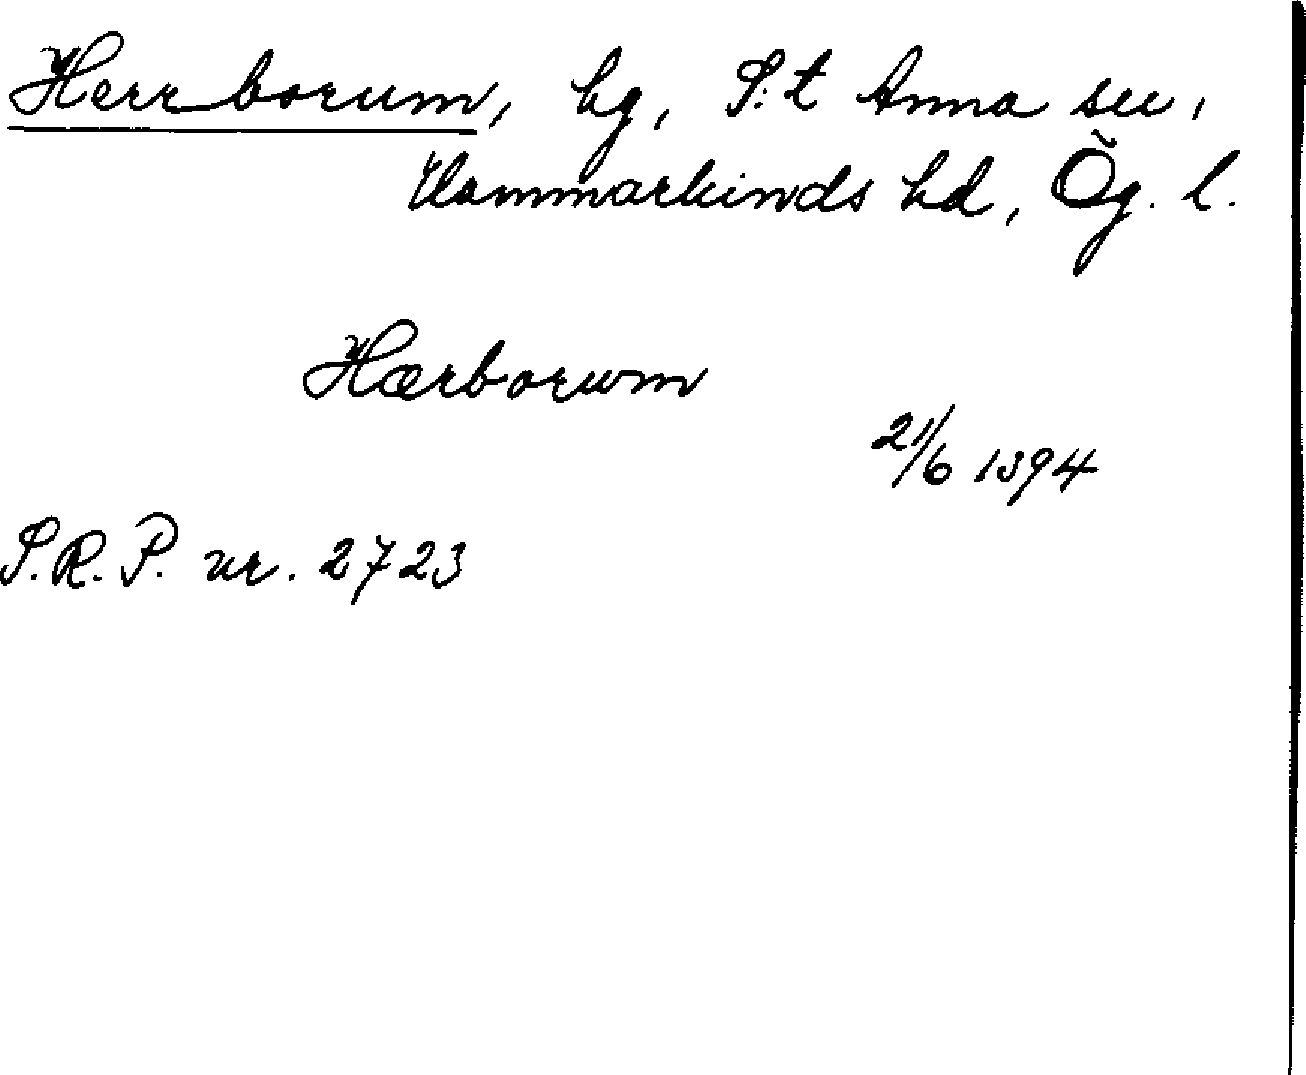 Herrborum, hg, S:t Anna sn,
Hammarkinds hd, Ög. l.
Hærborum
21/6 1394
S.R.P. nr. 2723